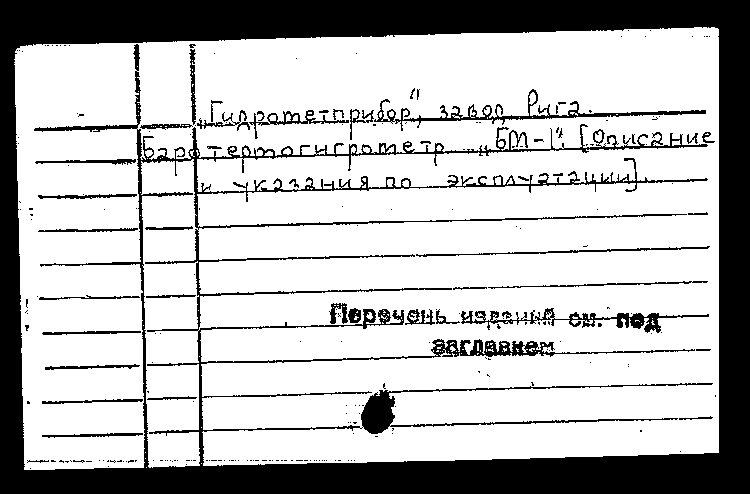 „Гидрометприбор“, завод Рига.
Баротермогигрометр „БМ-1“. [Описание
и указания по эксплуатации].
Перечень изданий см. под
заглавием